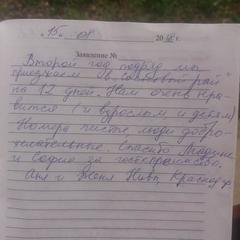 "15" 08 20 18 г.
Заявление №
Второй год подряд мы
приезжаем в "Сосновый рай"
на 12 дней. Нам очень нра-
вится (и взрослым и детям)
Номера чистые, люди добро-
желательные. Спасибо
и Софие за гостеприимство.
Аня и Женя Краснодар